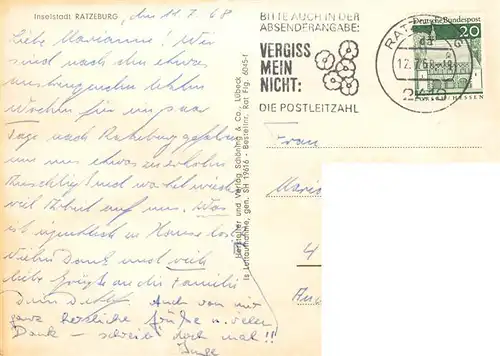 Inselstadt RATZEBURG, den 11.7.68
Liebe Marianne! Wir sind
nach dem etwas
anstrengenden letzten
Wochen für ein paar
Tage nach Ratzeburg gefahren
um uns etwas zu erholen.
und wartet wieder
viel Arbeit auf uns. Was
ist eigentlich im Hause los?
Vielen Dank und viele
liebe Grüße an die Familie
Auch von mir
ganz herzliche Grüße u. vielen
Dank - schreib doch mal!!
Inge
Hersteller und Verlag Schöning & Co., Lübeck
ls Luftaufnahme, gen. SH 19616 - Bestellnr. Rat Flg. 6045-f
BITTE AUCH IN DER
ABSENDERANGABE:
VERGISS
MEIN
NICHT:
DIE POSTLEITZAHL
12.7.68-18
Deutsche Bundespost
20
HESSEN
Frau
4